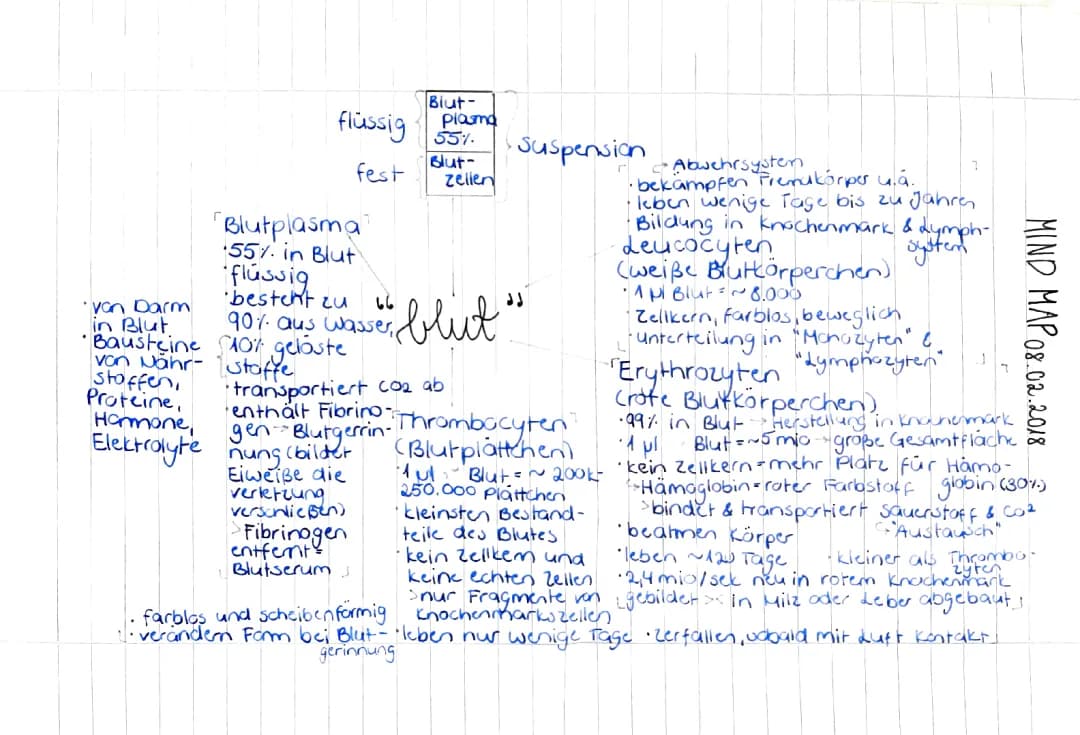 flüssig
fest
Blut-
plasma
55%
Blut-
zellen
Suspension
"Blutplasma"
·55% in Blut
·flüssig
·besteht zu
90% aus Wasser,
10% gelöste
Stoffe
·transportiert CO2 ab
·enthält Fibrino-
gen -> Blutgerrin-
nung (bilder
Eiweiße die
verletzung
verschließen)
>Fibrinogen
entfernt =
Blutserum
·von Darm
in Blut
·Bausteine
von Nähr-
stoffen,
Proteine,
Hormone,
Elektrolyte
"blut"
-> Abwehrsystem
·bekämpfen Fremdkörper u.ä.
·leben wenige Tage bis zu Jahren
·Bildung in Knochenmark & Lymph-
system
Leucocyten
(weiße Blutkörperchen)
·1 µl Blut = ~8.000
·Zellkern, farblos, beweglich
·unterteilung in "Monozyten" &
"Lymphozyten"
Erythrozyten
(rote Blutkörperchen)
·99% in Blut -> Herstellung in Knochenmark
·1 µl Blut = ~5mio -> große Gesamtfläche
·kein Zellkern = mehr Platz für Hämo-
globin (30%)
->Hämoglobin = roter Farbstoff
>bindet & transportiert Sauerstoff & CO2
-> "Austausch"
·beatmen Körper
·leben ~120 Tage ·kleiner als Thrombo-
zyten
·2,4mio/sek neu in rotem Knochenmark
gebildet >< in Milz oder Leber abgebaut
Thrombocyten
(Blutplättchen)
·1 µl Blut = ~ 200k-
250.000 Plättchen
·kleinsten Bestand-
teile des Blutes
·kein Zellkern und
keine echten Zellen
>nur Fragmente von
Knochenmarkszellen
·farblos und scheibenförmig
·verändern Form bei Blut-
gerinnung
·leben nur wenige Tage ·zerfallen, sobald mit Luft Kontakt
MIND MAP 08.02.2018